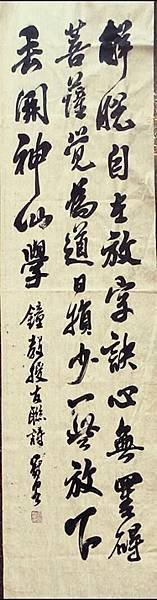 解脫自在放字訣心無罣礙
菩薩覺為道日損少一些放下
丟開神仙學 鐘教授友聯詩